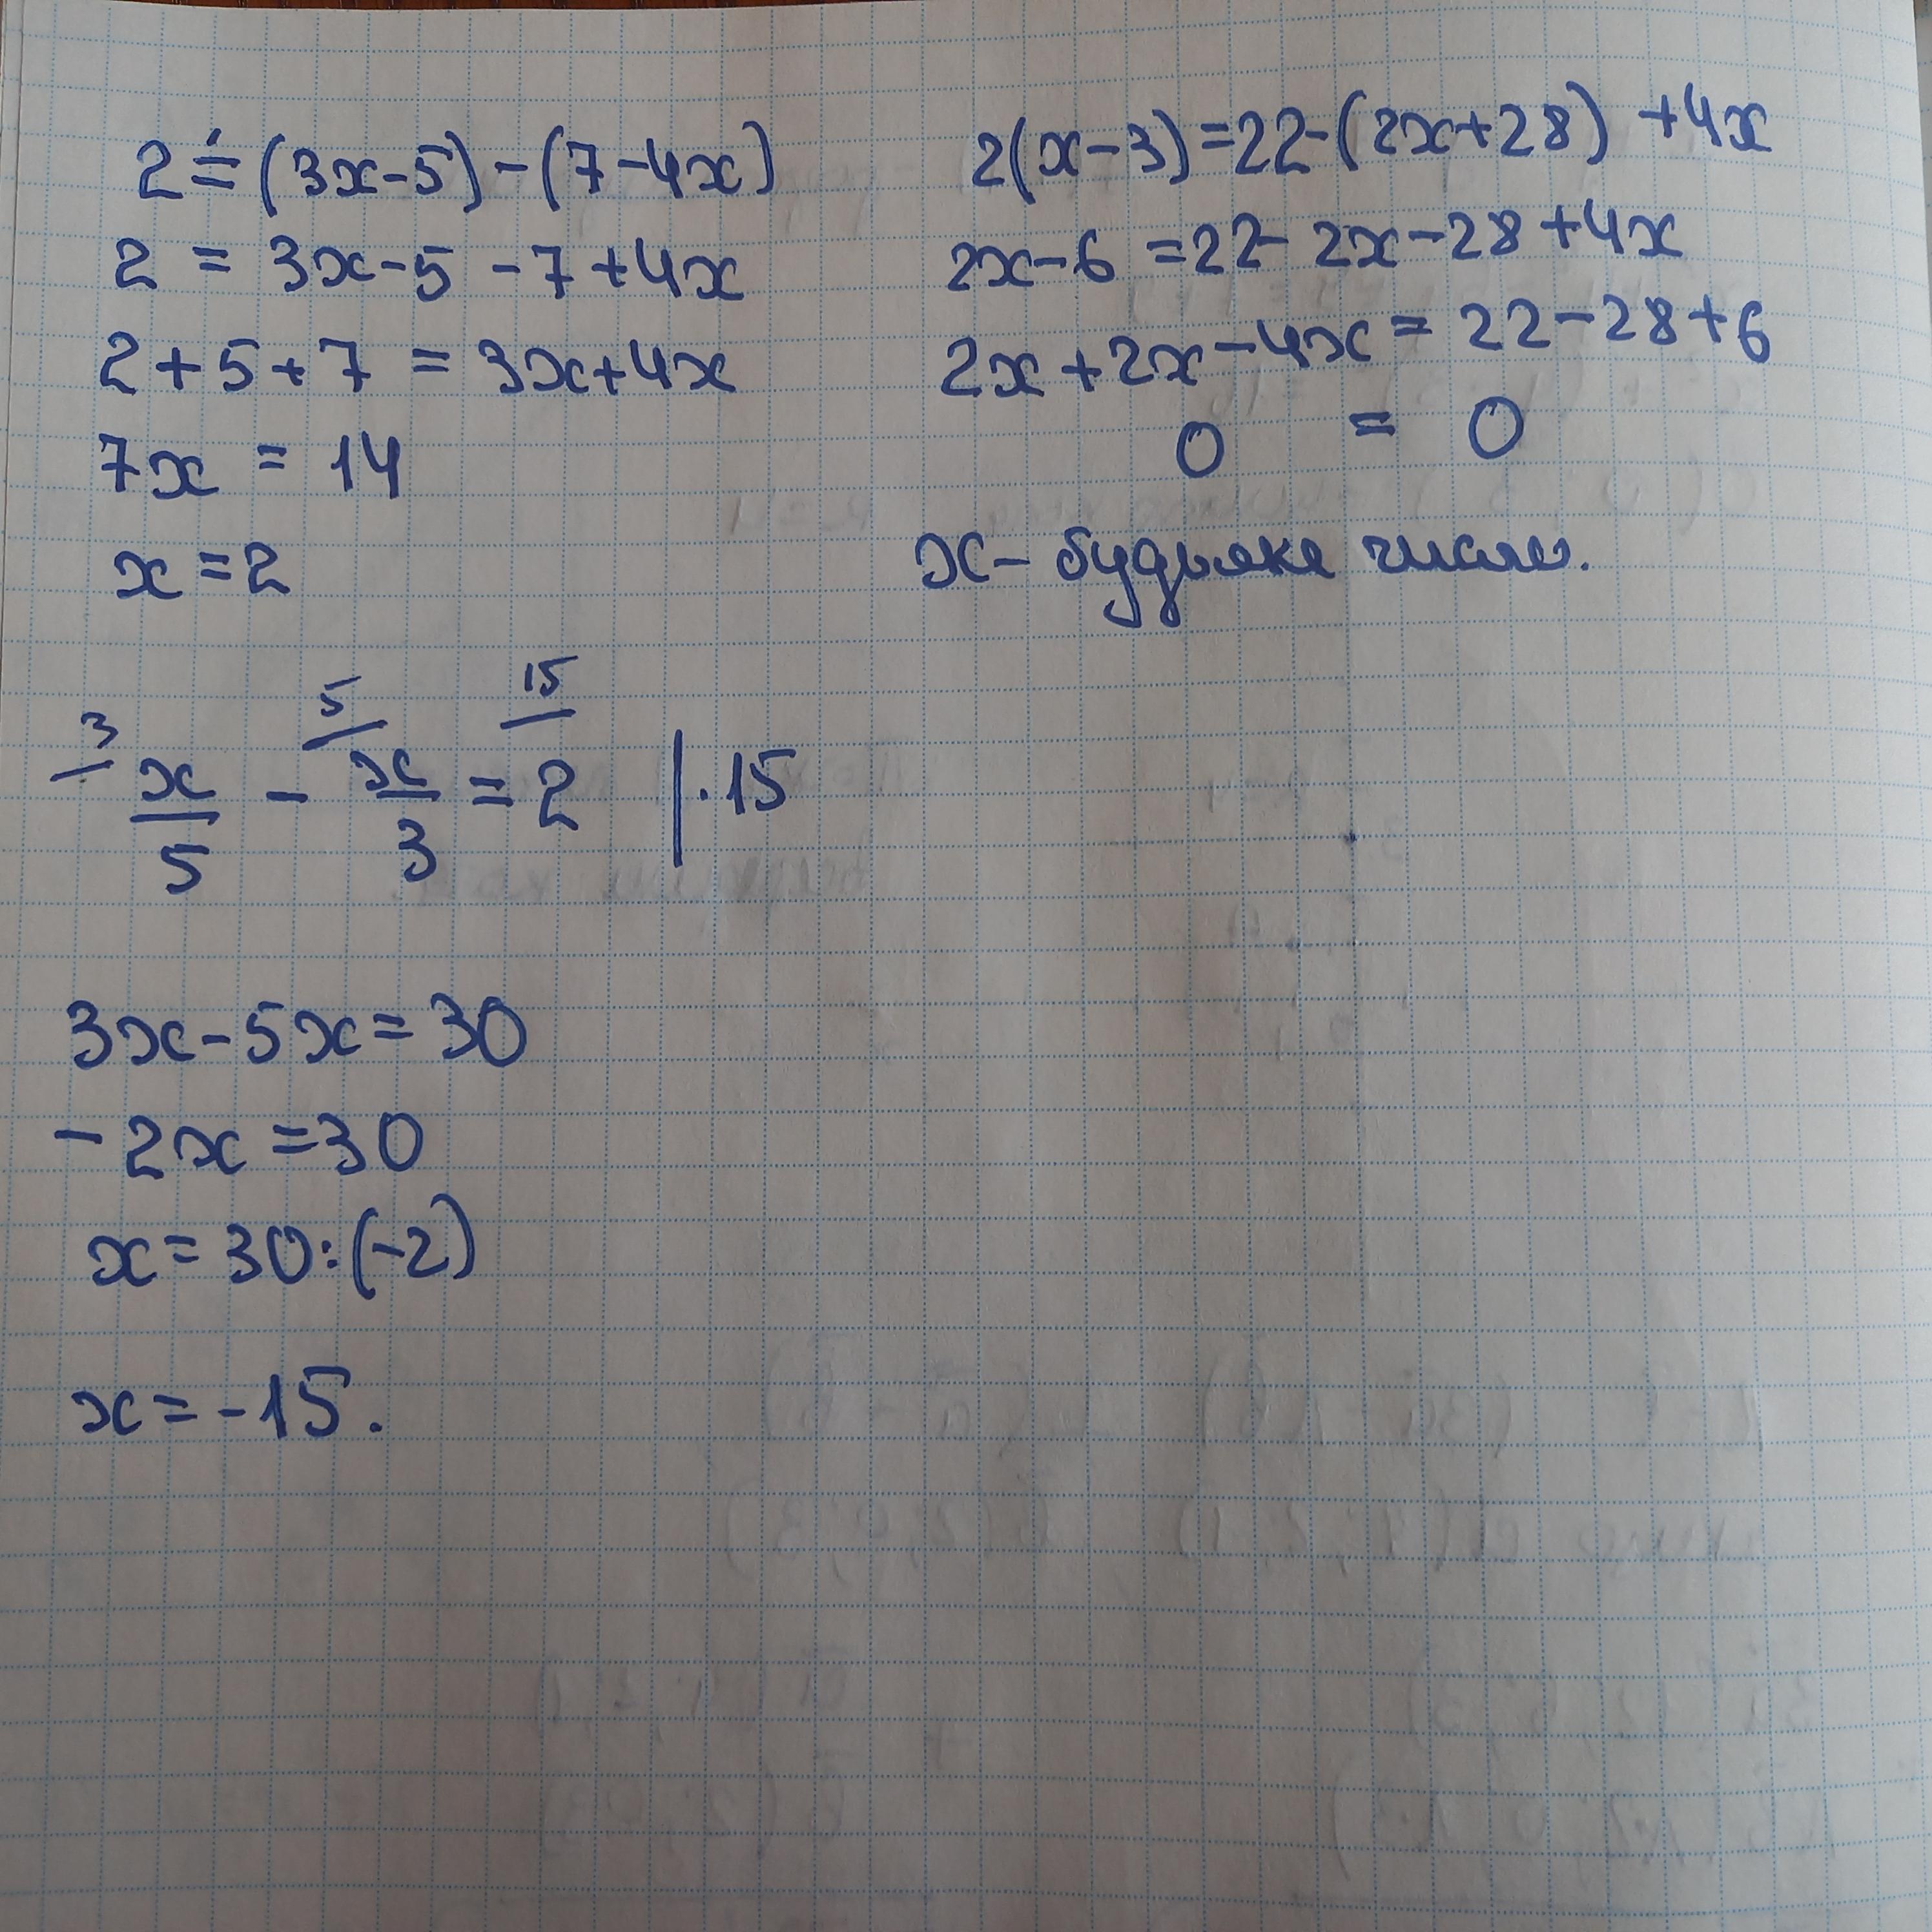 2 = (3x-5)-(7-4x)
2 = 3x-5-7+4x
2+5+7 = 3x+4x
7x = 14
x=2
2(x-3)=22-(2x+28)+4x
2x-6=22-2x-28+4x
2x+2x-4x=22-28+6
0 = 0
x- будьяке число.
3 5 15
x/5 - x/3 = 2 | ·15
3x-5x=30
-2x=30
x=30:(-2)
x=-15.